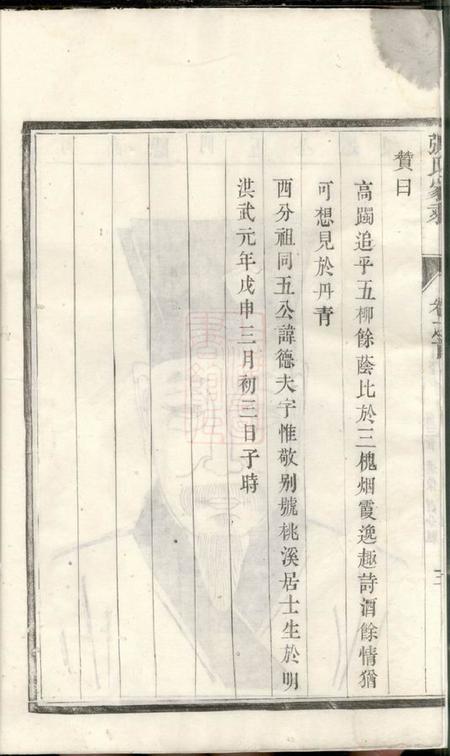 張氏家乘
贊曰
高躅追乎五柳餘蔭比於三槐烟霞逸趣詩酒餘情猶
可想見於丹青
西分祖同五公諱德夫字惟敬别號桃溪居士生於明
洪武元年戊申三月初三日子時